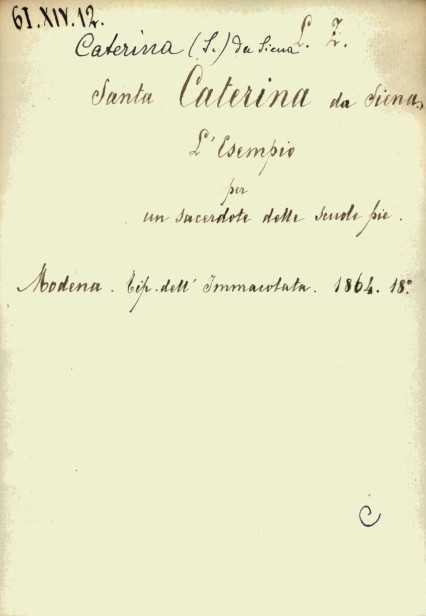 61.XIV.12.
Caterina (S.) da Siena L. Z.
Santa Caterina da Siena,
L'Esempio
per
un sacerdote delle scuole pie.
Modena. Tip. dell' Immacolata. 1864. 18º
C